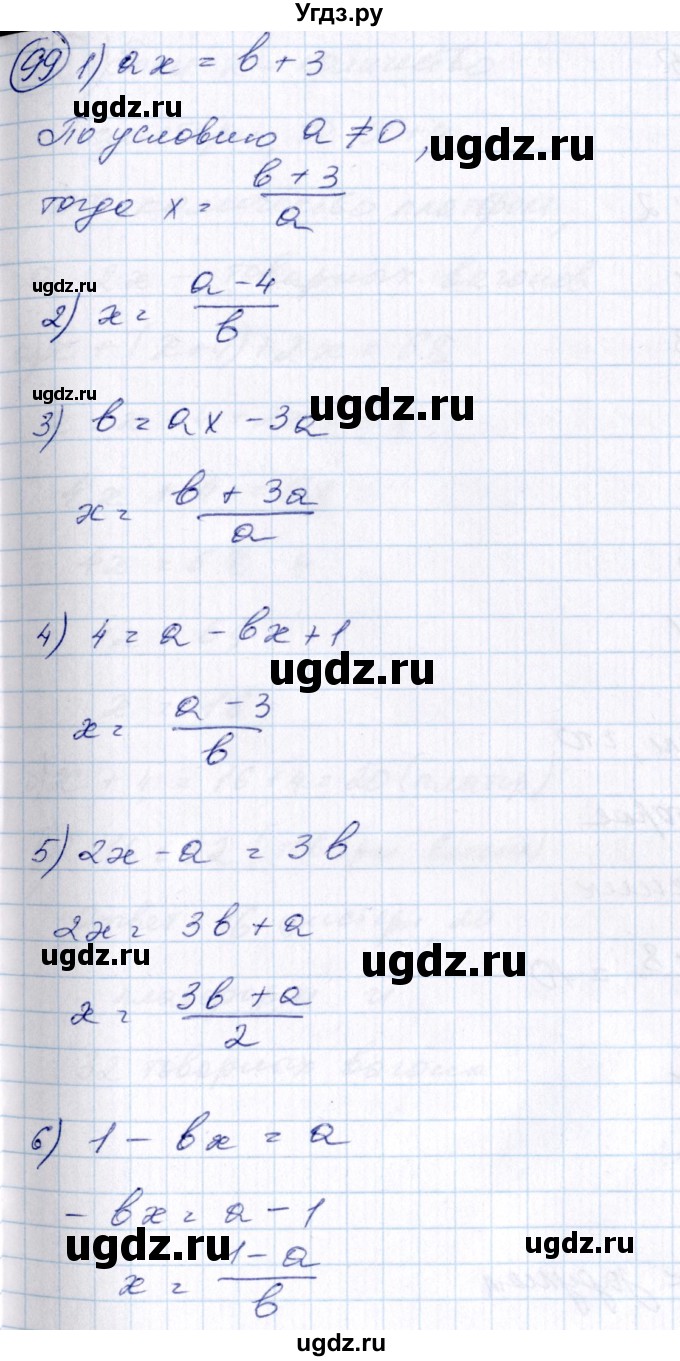 Угдз.ру
99 1) ax = b + 3
ugdz.ru ugdz.ru
По условию a ≠ 0,
тогда x = (b + 3)/a
ugdz.ru
2) x = (a - 4)/b
ugdz.ru ugdz.ru
3) b = ax - 3a
x = (b + 3a)/a
4) 4 = a - bx + 1
ugdz.ru
x = (a - 3)/b
5) 2x - a = 3b
2x = 3b + a
ugdz.ru ugdz.ru
x = (3b + a)/2
6) 1 - bx = a
- bx = a - 1
ugdz.ru ugdz.ru
x = (1 - a)/b
ugdz.ru